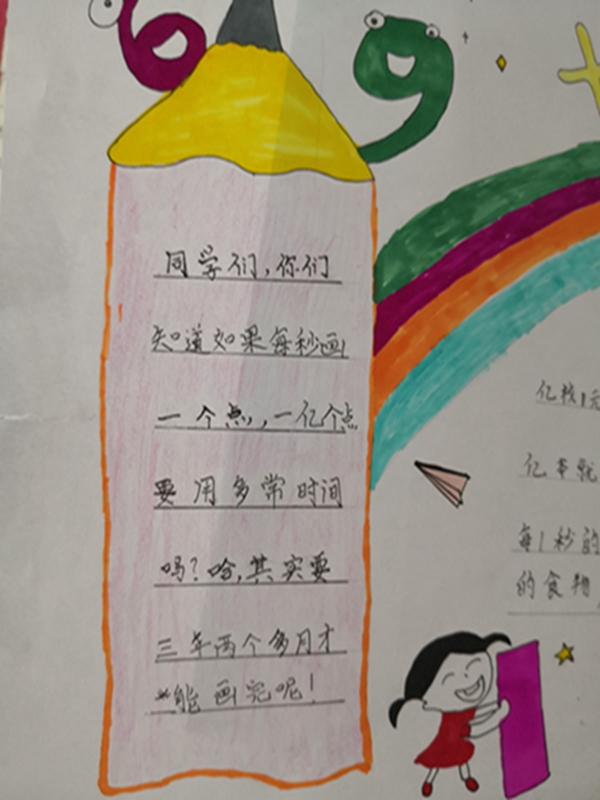 69
同学们,你们
知道如果每秒画
一个点,一亿个点
要用多常时间
吗?哈,其实要
三年两个多月才
能画完呢!
亿枚1元
亿本就
每1秒的
的食物